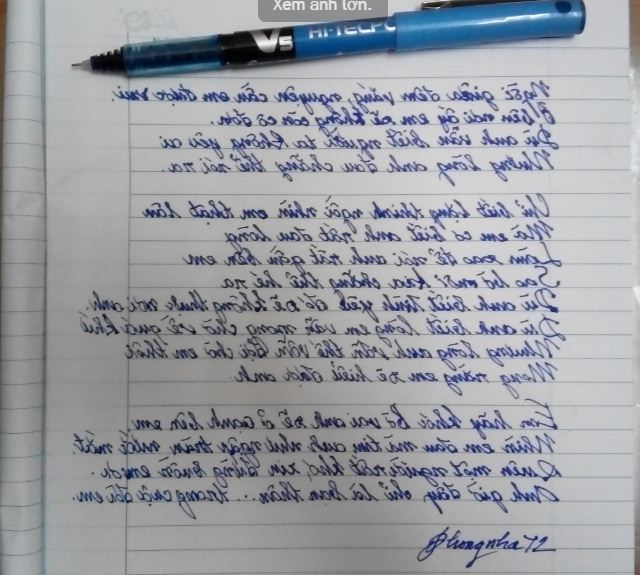 Xem ảnh lớn.
V5 HI-TECPO
Ngồi giữa đêm vắng, nguyện cầu em được vui.
Ở bên nơi ấy em sẽ không còn cô đơn.
Dù anh vẫn biết người ta không yêu ai
Nhưng lòng anh đau chẳng thể nói ra.
Chỉ biết lặng thinh ngồi nhìn em thật lâu
Mà em có biết anh rất đau lòng
Làm sao để nói anh rất gần bên em
Sao bờ môi kia chẳng thể hé ra
Dù anh biết tình yêu đó sẽ không thuộc nơi anh.
Dù anh biết lòng em vẫn mong chờ về quá khứ
Nhưng lòng anh vẫn thế vẫn đợi chờ em thôi
Mong rằng em sẽ hiểu được anh
Em hãy khóc bờ vai anh sẽ ở cạnh bên em
Nhìn em đau mà tim anh như tràn nước mắt.
Quên một người rất khó, xin đừng buồn em ơi.
Anh giờ đây, chỉ là bạn thân... trong cuộc đời em.
Phongnha72